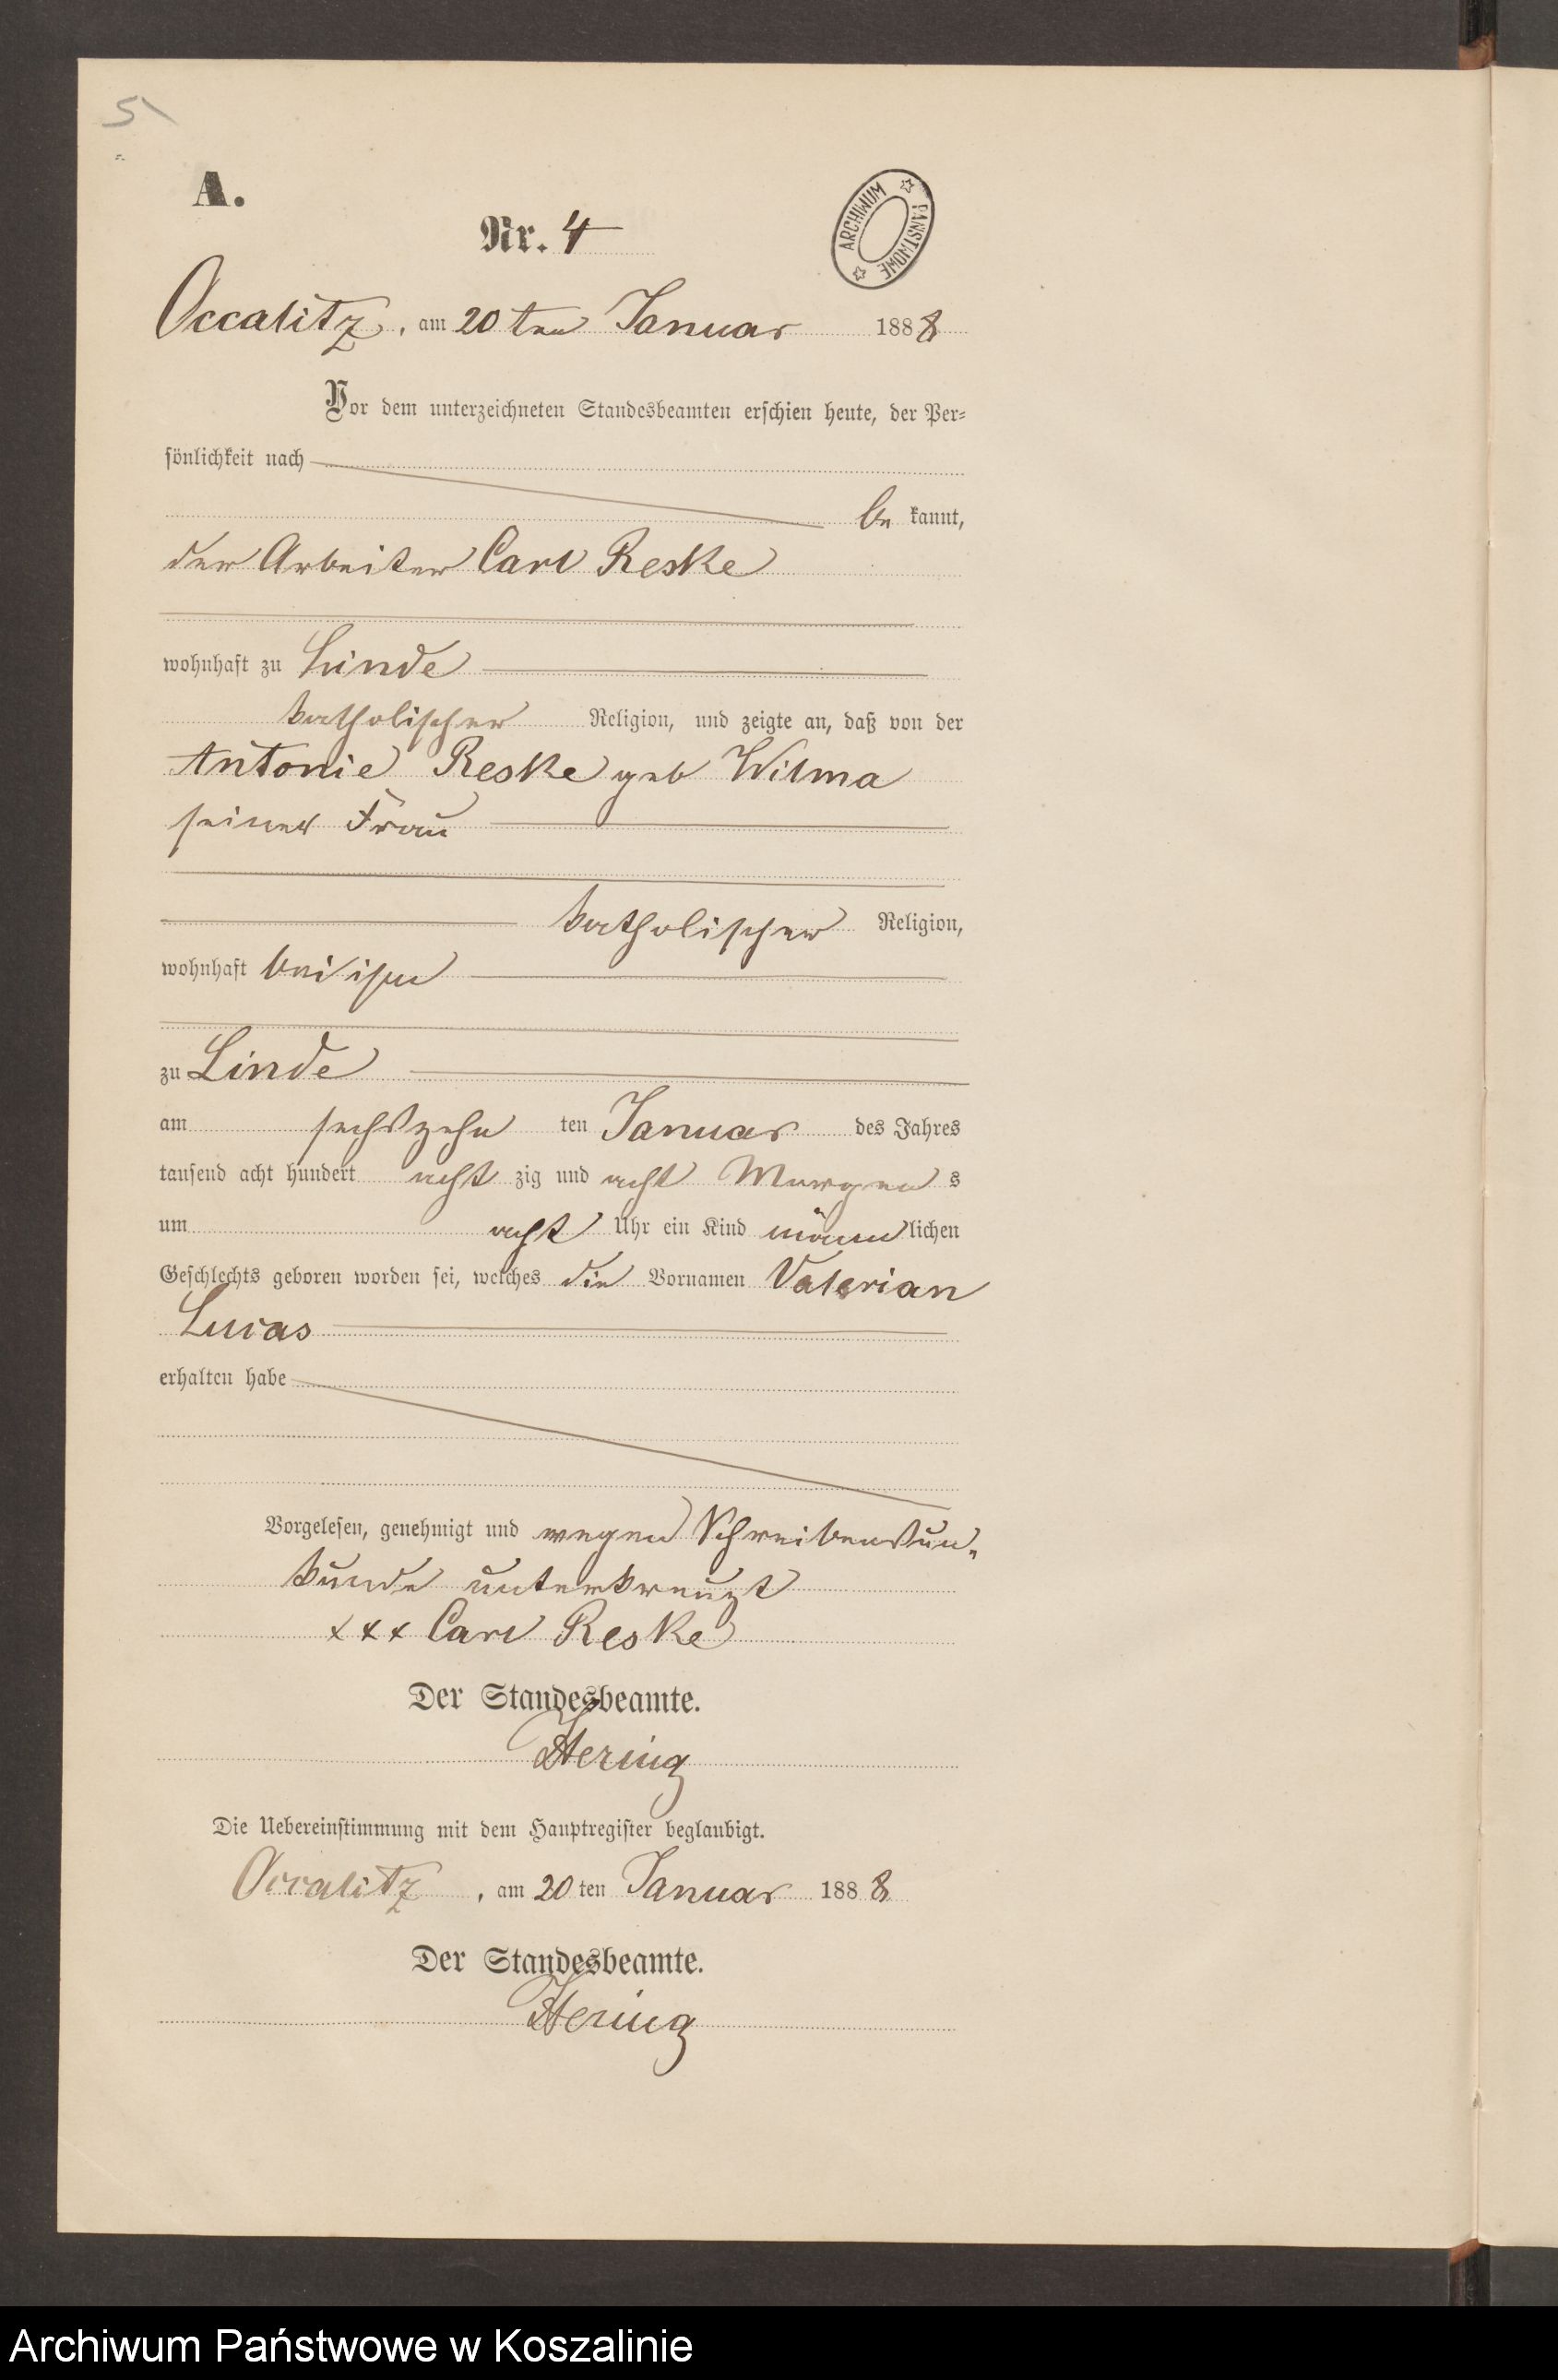 5
A.
Nr. 4
ARCHIWUM PAŃSTWOWE
Occalitz, am 20ten Januar 1888
Vor dem unterzeichneten Standesbeamten erschien heute, der Per-
sönlichkeit nach
be kannt,
der Arbeiter Carl Reske
wohnhaft zu Linde
katholischer Religion, und zeigte an, daß von der
Antonie Reske geb Wilma
seiner Frau
katholischer Religion,
wohnhaft bei ihm
zu Linde
am sechszehn ten Januar des Jahres
tausend acht hundert acht zig und acht Morgen s
um acht Uhr ein Kind männlichen
Geschlechts geboren worden sei, welches die Vornamen Valerian
Lucas
erhalten habe
Vorgelesen, genehmigt und wegen Schreibensun-
kunde unterkreuzt
xxx Carl Reske
Der Standesbeamte.
Hering
Die Uebereinstimmung mit dem Hauptregister beglaubigt.
Occalitz, am 20ten Januar 1888
Der Standesbeamte.
Hering
Archiwum Państwowe w Koszalinie